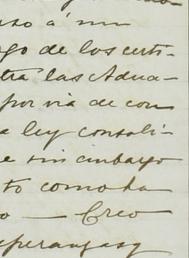 esto á mi
go de los certi-
tra las Adua-
por via de con
a ley consoli-
e sin embargo
to como ha
o — Creo
speranzas y